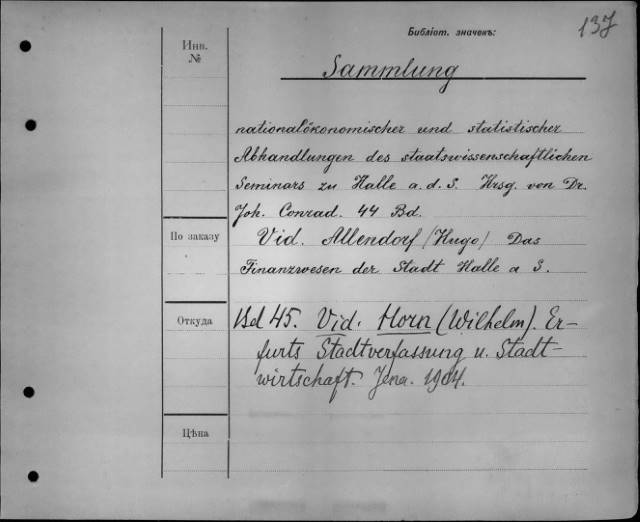 137
Библіот. значекъ:
Инв.
№
Sammlung
nationalökonomischer und statistischer
Abhandlungen des staatswissenschaftlichen
Seminars zu Halle a. d. S. Hrsg. von Dr.
Joh. Conrad. 44 Bd.
По заказу
Vid. Allendorf /Hugo/ Das
Finanzwesen der Stadt Halle a S.
Откуда
Bd 45. Vid. Horn (Wilhelm). Er-
furts Stadtverfassung u. Stadt-
wirtschaft. Jena. 1904.
Цѣна